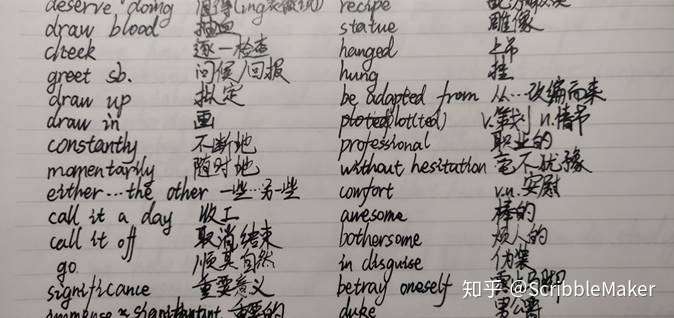 deserve doing
draw blood 抽血
check 逐一检查
greet sb. 问候/回报
draw up 拟定
draw in 画
constantly 不断地
momentarily 随时地
either...the other 一些...另一些
call it a day 收工
call it off 取消结束
go 顺其自然
significance 重要意义
immense 重要的
recipe
statue 雕像
hanged 上吊
hung 挂
be adapted from 从...改编而来
plot(ted) v.策划 n.情节
professional 职业的
without hesitation 毫不犹豫
comfort v.n.安慰
awesome 棒的
bothersome 烦人的
in disguise 伪装
betray oneself
duke 男公爵
知乎 @ScribbleMaker